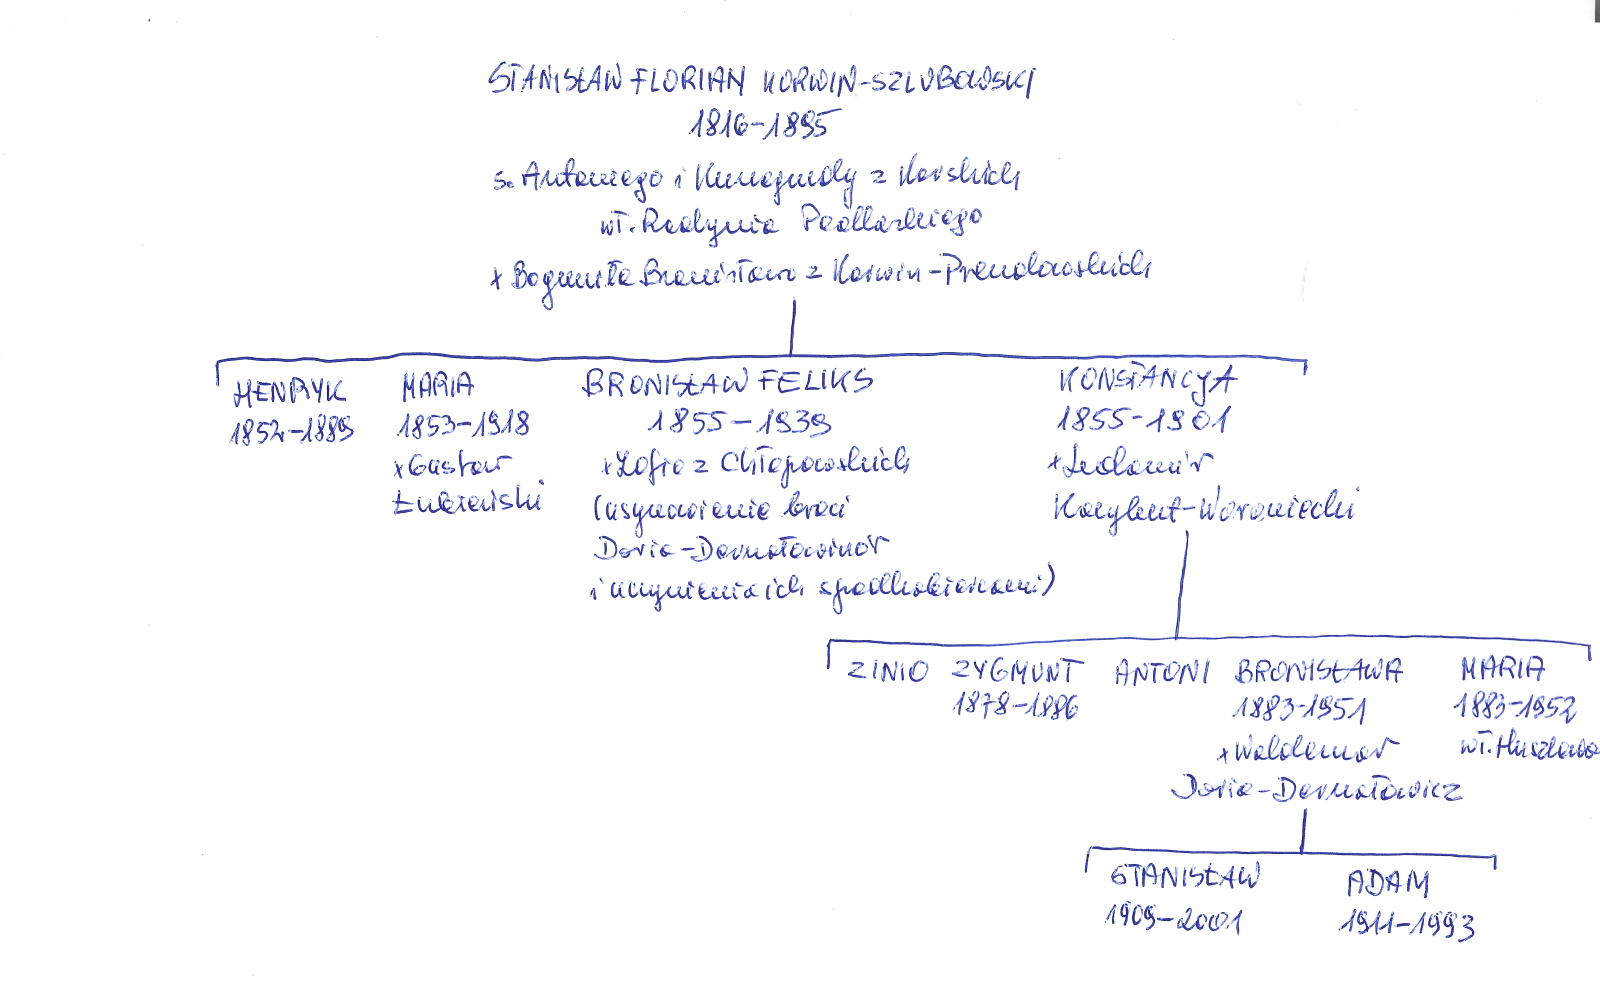 STANISŁAW FLORIAN KORWIN-SZLUBOWSKI
1816-1895
s. Antoniego i Kunegundy z Karskich
wł. Radzynia Podlaskiego
x Bogumiła Bronisława z Korwin-Prendowskich
HENRYK
1852-1889
MARIA
1853-1918
x Gustaw
Łubieński
BRONISŁAW FELIKS
1855-1939
x Zofia z Chłapowskich
(usynowienie braci
Doria-Dernałowiczów
i uczynienie ich spadkobiercami)
KONSTANCYA
1855-1901
x
Korybut-Woroniecki
ZINIO
ZYGMUNT
1878-1886
ANTONI
BRONISŁAWA
1883-1951
x Waldemar
Doria-Dernałowicz
MARIA
1883-1952
wł. Huszlewa
STANISŁAW
1909-2001
ADAM
1911-1993